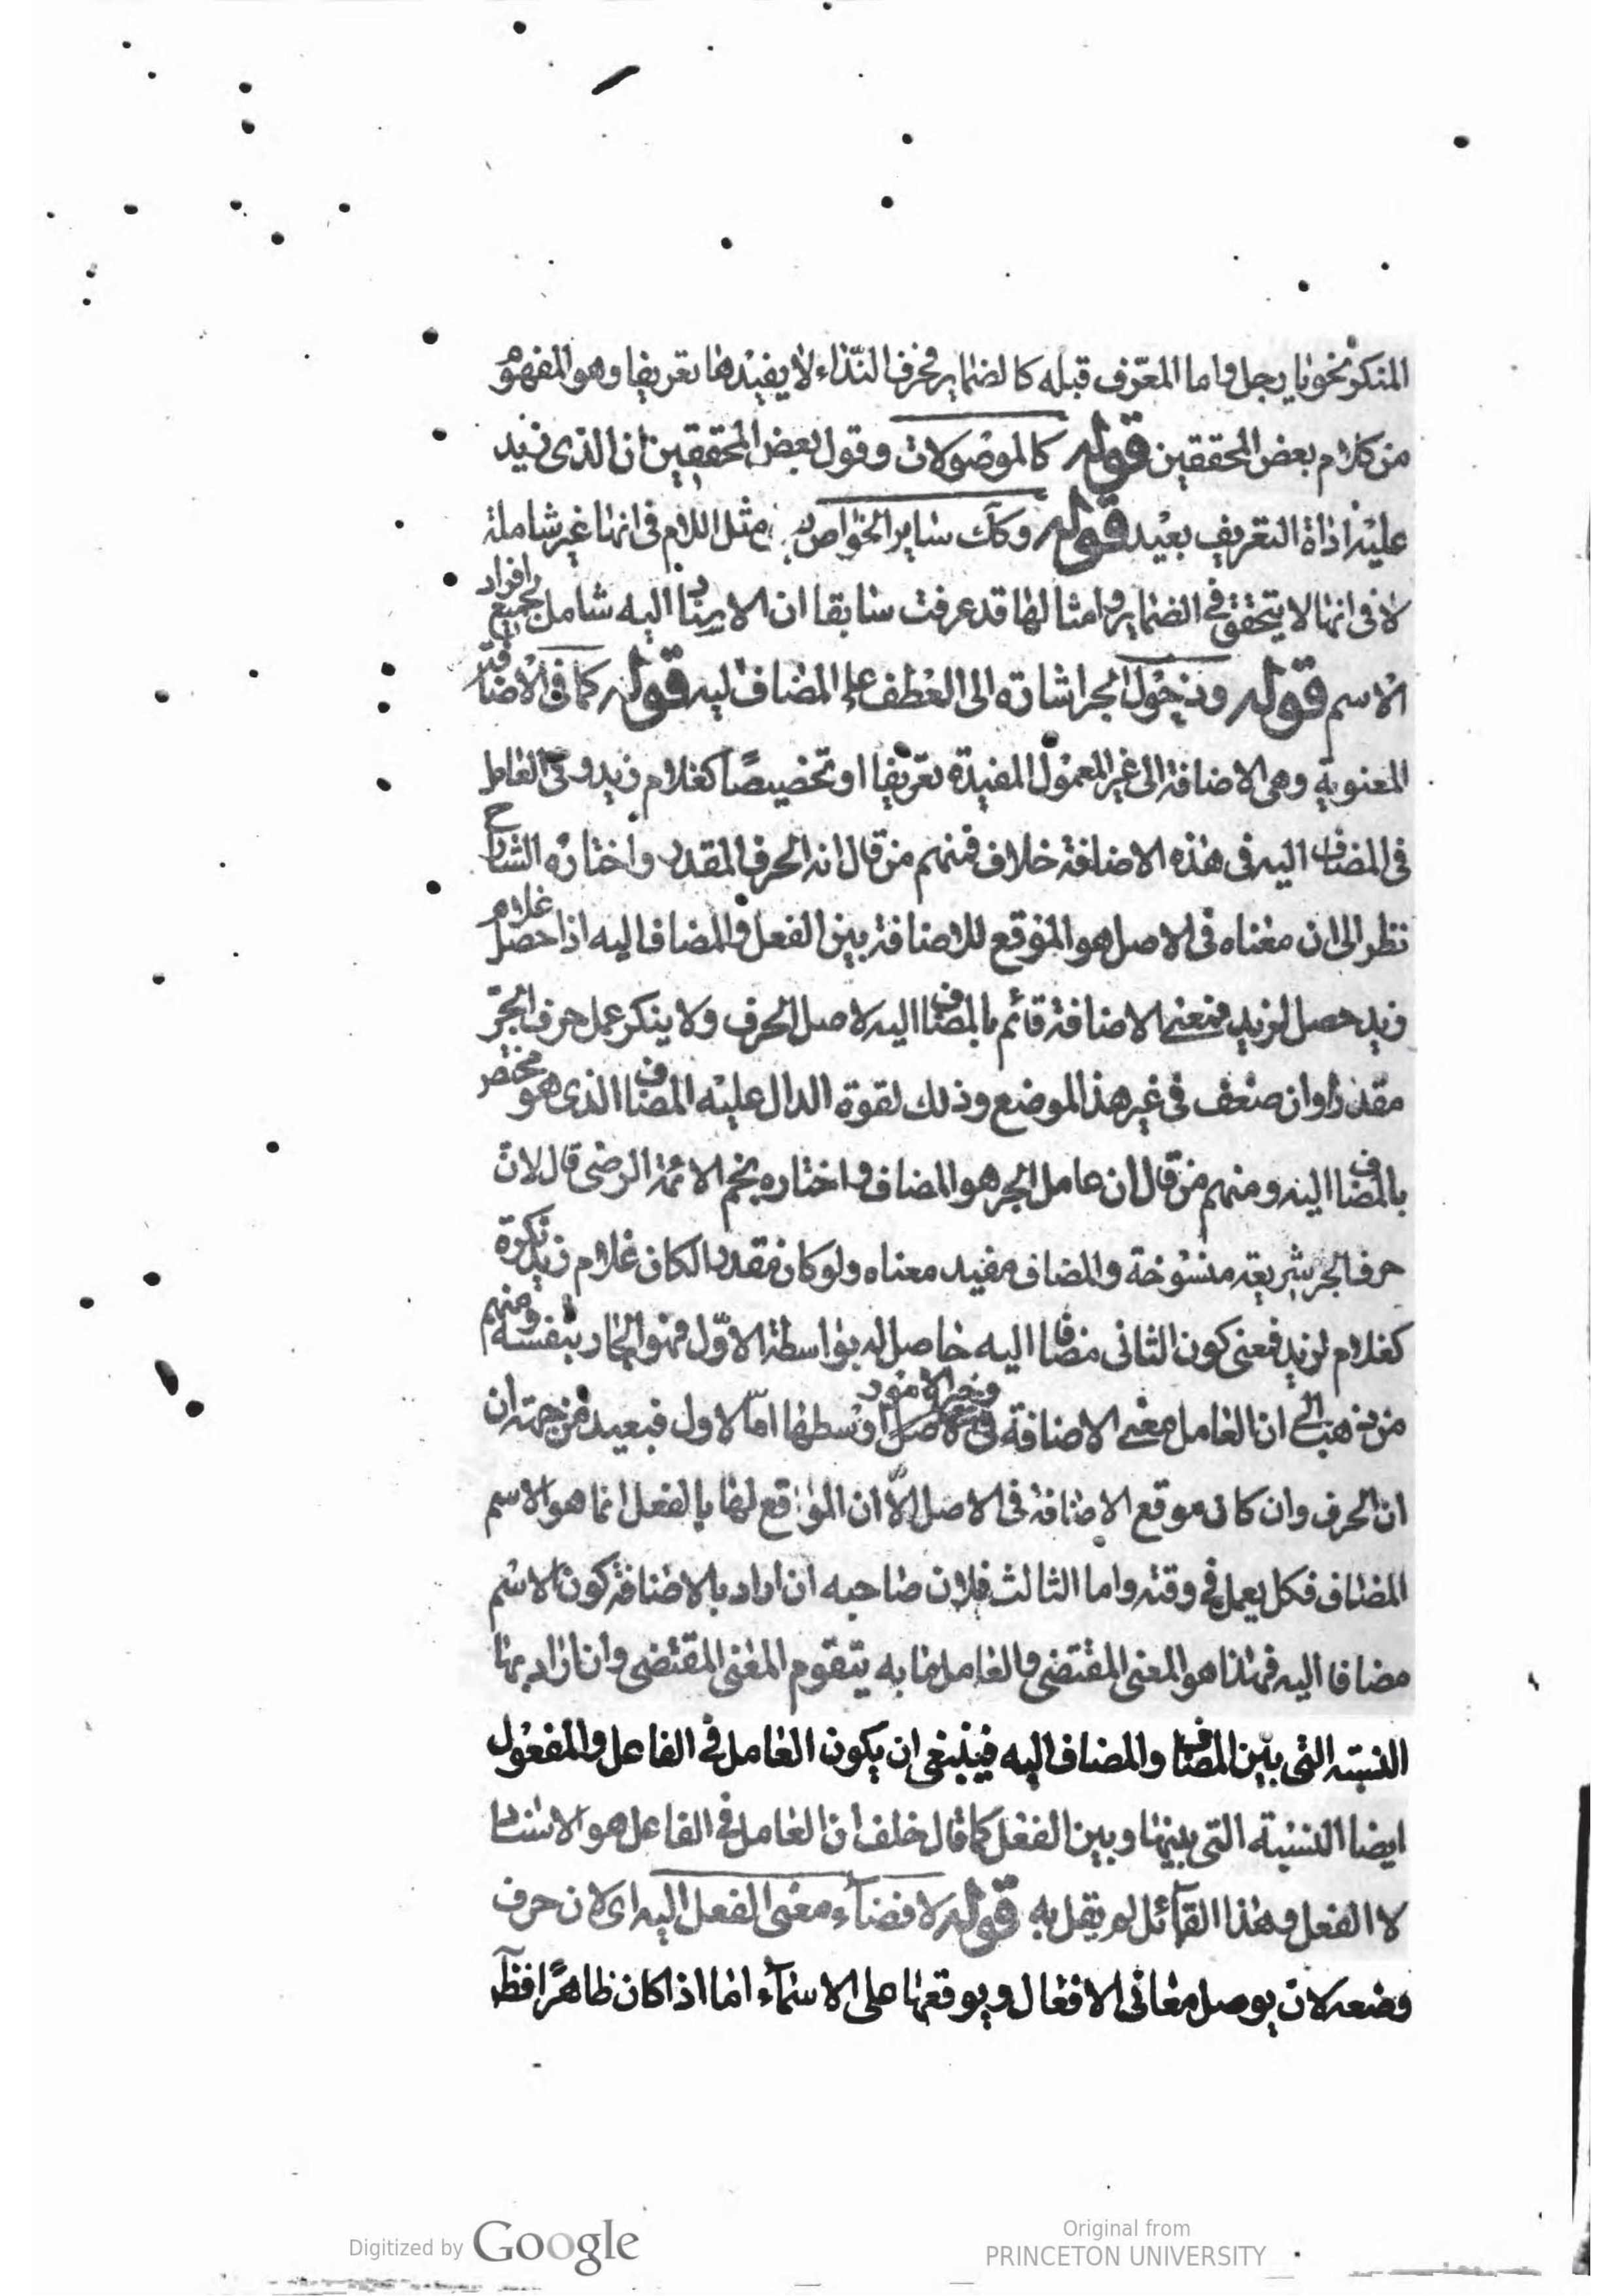 المنكر نحو يا رجل واما المعرّف قبله كالضماير فحرف النّداء لا يفيدها تعريفا وهو المفهوم
من كلام بعض المحققين قوله كالموصولات وقول بعض المحققين ان الذى زيد
عليه اداة التعريف بعيد قوله وكك ساير الخواص مثل اللام فى انها غير شاملة
لا فى انها لا يتحقق فى الضماير وامثالها قد عرفت سابقا ان الاسناد اليه شامل لجميع افراد
الاسم قوله ودخول الجر اشارة الى العطف على المضاف ليه قوله كما فى الاضافة
المعنوية وهى الاضافة الى غير المعمول المفيدة تعريفا او تخصيصًا كغلام زيد وفى العامل
فى المضاف اليه فى هذه الاضافة خلاف فمنهم من قال انه الحرف المقدر واختاره الشارح
نظر الى ان معناه فى الاصل هو الموقع للاضافة بين الفعل والمضاف اليه اذا حصل غلام
زيد حصل لزيد فمعنى الاضافة قائم بالمضاف اليه لاصل الحرف ولا ينكر عمل حرف الجرّ
مقدرا وان ضعف فى غير هذا الموضع وذلك لقوة الدال عليه المضاف الذى هو مختص
بالمضاف اليه ومنهم من قال ان عامل الجر هو المضاف واختاره نجم الائمة الرضى قال لان
حرف الجر شريعة منسوخة والمضاف مفيد معناه ولو كان مقدرا لكان غلام زيد نكرة
كغلام لزيد فمعنى كون الثانى مضافا اليه حاصل له بواسطة الاوّل فهو الجار بنفسه ومنهم
من ذهب الى ان العامل معنى الاضافة وخير الامور اوسطها امّا الاول فبعيد من جهة ان
ان الحرف وان كان موقع الاضافة فى الاصل الّا ان الموقع لها بالفعل انما هو الاسم
المضاف فكل يعمل فى وقته واما الثالث فلان صاحبه ان اراد بالاضافة كون الاسم
مضافا اليه فهذا هو المعنى المقتضى والعامل ما به يتقوم المعنى المقتضى وان اراد بها
النسبة التى بين المضاف والمضاف اليه فينبغى ان يكون العامل فى الفاعل والمفعول
ايضا النسبة التى بينها وبين الفعل كما قال خلف ان العامل فى الفاعل هو الاسناد
لا الفعل وهذا القآئل لم يقل به قوله لافضآء معنى الفعل اليه اى لان حرف
وضعه لان يوصل معانى الافعال ويوقعها على الاسمآء اما اذا كان ظاهرًا فظآ
Digitized by Google
Original from
PRINCETON UNIVERSITY